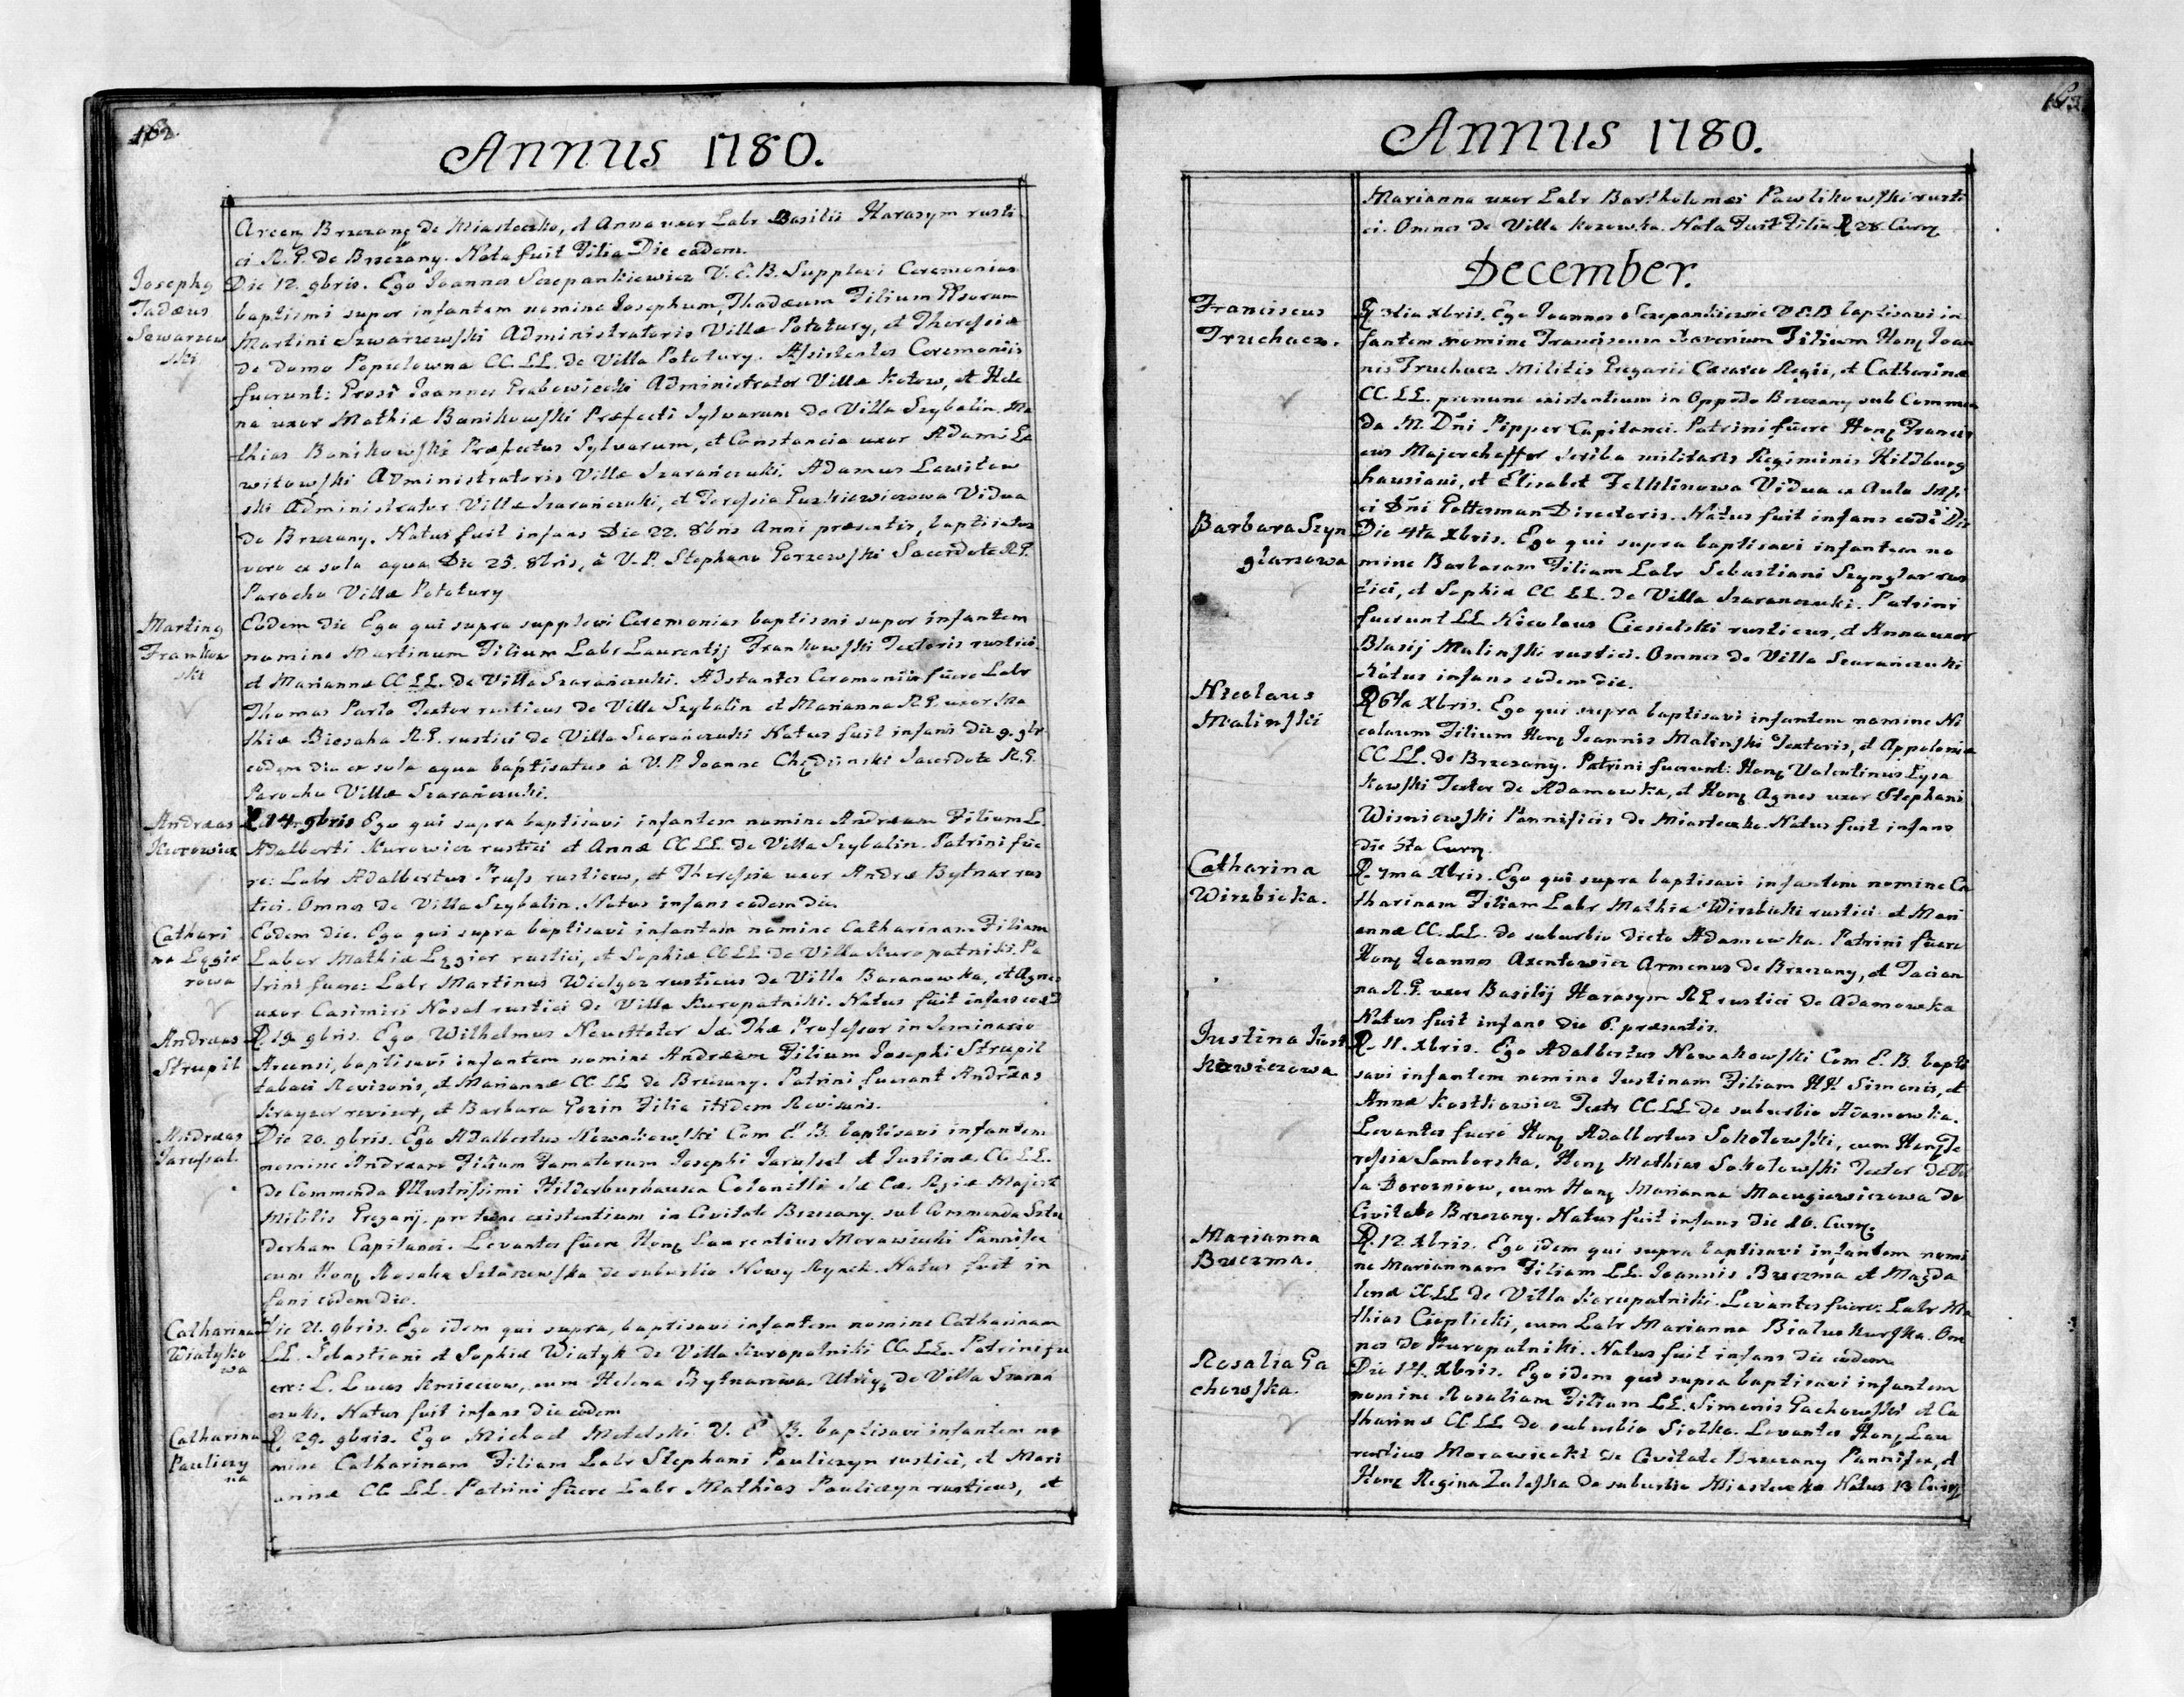 162.
Annus 1780.
Brzezany de Miasteczko, et Anna uxor Labr Basilii Harasym rusti
ci R. G. de Brzezany. Nata fuit Filia Die eadem.
Josephg
Tadæus
Szwarzew
ski
Die 12. 9bris. Ego Joannes Szczepankiewicz V. C. B. Supplevi Ceremonias
baptismi super infantem nomine Josephum, Thadæum Filium
Martini Szwarzewski Administratoris Villæ Potutury, et Theressiæ
de domo CC. LL. de Villa Potutury. Assistentes Ceremoniis
fuerunt: Joannes Administrator Villæ Kotow, et Hele
na uxor Mathiæ Banikowski Præfecti Sylvarum de Villa Szybalin. Ma
thias Banikowski Præfectus Sylvarum, et Constancia uxor Adami Le
witowski Administratoris Villæ Szaranczuki. Adamus Lewitow
ski Administrator Villæ Szaranczuki, et Teressia Vidua
de Brzezany. Natus fuit infans Die 22. 8bris Anni præsentis, baptisatus
vero ex sola aqua Die 25. 8bris, à V. P. Stephano Gorzewski Sacerdote R. G.
Parocho Villæ Potutury
Marting
Frankow
ski
Eodem die Ego qui supra supplevi Ceremonias baptismi super infantem
nomine Martinum Filium Labr Laurentij Frankowski Textoris rustici
et Mariannæ CC LL. de Villa Szaranczuki. Adstantes Ceremoniis fuere Labr
Thomas Parlo Textor rusticus de Villa Szybalin et Marianna R. G. uxor Ma
thiæ R. G. rustici de Villa Szaranczuki Natus fuit infans die 9. 9br.
eodem die ex sola aqua baptisatus à V. P. Joanne Sacerdote R. G.
Parocho Villæ Szaranczuki.
Andræas
Kurowicz
D. 14. 9bris Ego qui supra baptisavi infantem nomine Andræam Filium L.
Adalberti Kurowicz rustici et Annæ CC LL. de Villa Szybalin. Patrini fue
re: Labr Adalbertus Pruss rusticus, et Theressia uxor Andreæ Bytnar rus
tici. Omnes de Villa Szybalin. Natus infans eadem die.
Cathari
na Lęgie
rowa
Eodem die. Ego qui supra baptisavi infantem nomine Catharinam Filiam
Labor Mathiæ Lęgier rustici, et Sophiæ CC LL de Villa Kuropatniki. Pa
trini fuere: Labr Martinus Wielgosz rusticus de Villa Baranowka, et Agnes
uxor Casimiri Nosal rustici de Villa Kuropatniki. Natus fuit infans
Andræas
Strupil
D. 19. 9bris. Ego Wilhelmus Professor in Seminario
baptisavi infantem nomine Andræam Filium Josephi Strupil
tabaci Revisoris, et Mariannæ CC LL de Brzezany. Patrini fuerunt Andræas
revisor, et Barbara Filia itidem Revisoris.
Andræas
Jarussel.
Die 20. 9bris. Ego Adalbertus Nowakowski Com E. B. baptisavi infantem
nomine Andræam Filium Famatorum Josephi Jarussel et Justinæ CC. LL.
de Commenda Illustrissimi Colonelli
Militis Gregarij, pro tunc existentium in Civitate Brzezany sub Commenda
Capitanei. Levantes fuere Hong Laurentius Morawiecki Pannifex
cum Hong Rosalia de suburbio Nowy Rynek. Natus fuit in
fans eodem die.
Catharina
Wiatyko
wa
Die 21. 9bris. Ego idem qui supra, baptisavi infantem nomine Catharinam
LL. Sebastiani et Sophiæ Wiatyk de Villa Kuropatniki CC. LL. Patrini fu
ere: L. Lucas Kmieciow, cum Helena Bytnarowa de Villa Szaran
czuki. Natus fuit infans die eodem
Catharina
Pauliczy
na
D. 29. 9bris. Ego Michael Metelski V. E B. baptisavi infantem no
mine Catharinam Filiam Labr Stephani Pauliczyn rustici, et Mari
annæ CC LL. Patrini fuere Labr Mathias Pauliczyn rusticus, et
163
Annus 1780.
Marianna uxor Labr Bartholomæi Pawlikowski rusti
ci. Omnes de Villa Kozowka. Nata Fuit Filia D 28. Curr
December.
Franciscus
Truchacz.
D 3tia Xbris. Ego Joannes Szczepankiewicz V E. B baptisavi in
fantem nomine Franciscum Xaverium Filium Hong Joan
nis Truchacz Militis Gregarii Cæsareo Regii, et Catharinæ
CC. LL. pronunc existentium in Oppdo Brzezany sub Commen
da M. Dni Pipper Capitanei. Patrini fuere Hong Francis
cus Majerchoffer Scriba militaris Regiminis Hildburg
hausiani, et Elisabet Vidua ex Aula
ci Dni Directoris. Natus fuit infans Die
Barbara Szyn
glarzowa
Die 4ta Xbris. Ego qui supra baptisavi infantem no
mine Barbaram Filiam Labr Sebastiani Szynglar rus
tici, et Sophiæ CC LL. de Villa Szaranczuki. Patrini
fuerunt LL Nicolaus Ciesielski rusticus, et Anna uxor
Blasij Malinski rustici. Omnes de Villa Szaranczuki
Natus infans eodem die.
Nicolaus
Malinski
D 6ta Xbris. Ego qui supra baptisavi infantem nomine Ni
colaum Filium Hong Joannis Malinski Textoris, et Appoloniæ
CC LL. de Brzezany. Patrini fuerunt: Hong Valentinus Łysa
kowski Textor de Adamowka, et Hong Agnes uxor Stephani
Wisniowski Pannificis de Miasteczko. Natus fuit infans
die 5ta Curr.
Catharina
Wirzbicka.
D. 7ma Xbris. Ego qui supra baptisavi infantem nomine Ca
tharinam Filiam Labr Mathiæ Wirzbicki rustici et Mari
annæ CC. LL. de suburbio dicto Adamowka. Patrini fuere
Hong Joannes Axentowicz Armenus de Brzezany, et Tacian
na R. G. uxor Basilij Harasym R G rustici de Adamowka
Natus fuit infans die 6. præsentis.
Justina Kost
kiewiczowa
D. 11. Xbris. Ego Adalbertus Nowakowski Com E. B. bapti
savi infantem nomine Justinam Filiam HH. Simonis, et
Annæ Kostkiewicz Textr CC LL de suburbio Adamowka.
Levantes fuere Hong Adalbertus Sokołowski, cum Hong Te
ressia Samborska. Hong Mathias Sokołowski Textor de Vil
la Dorozniow, cum Hong Marianna Macugiewiczowa de
Civitate Brzezany. Natus fuit infans die 10. Curr.
Marianna
Brzezma.
D. 12 Xbris. Ego idem qui supra baptisavi infantem nomi
ne Mariannam Filiam LL. Joannis Brzezma et Magda
lenæ CC LL de Villa Koropatniki. Levantes fuere: Labr Ma
thias Cieplicki, cum Labr Marianna Om
nes de Kuropatniki. Natus fuit infans die eodem
Rosalia Ga
chowska.
Die 14. Xbris. Ego idem qui supra baptisavi infantem
nomine Rosaliam Filiam LL. Simonis Gachowski et Ca
tharinæ CC LL de suburbio Siołko. Levantes Hong Lau
rentius Morawiecki de Civitate Brzezany Pannifex, et
Hong Regina Zaleska de suburbio Miasteczko Natus 13 Curr